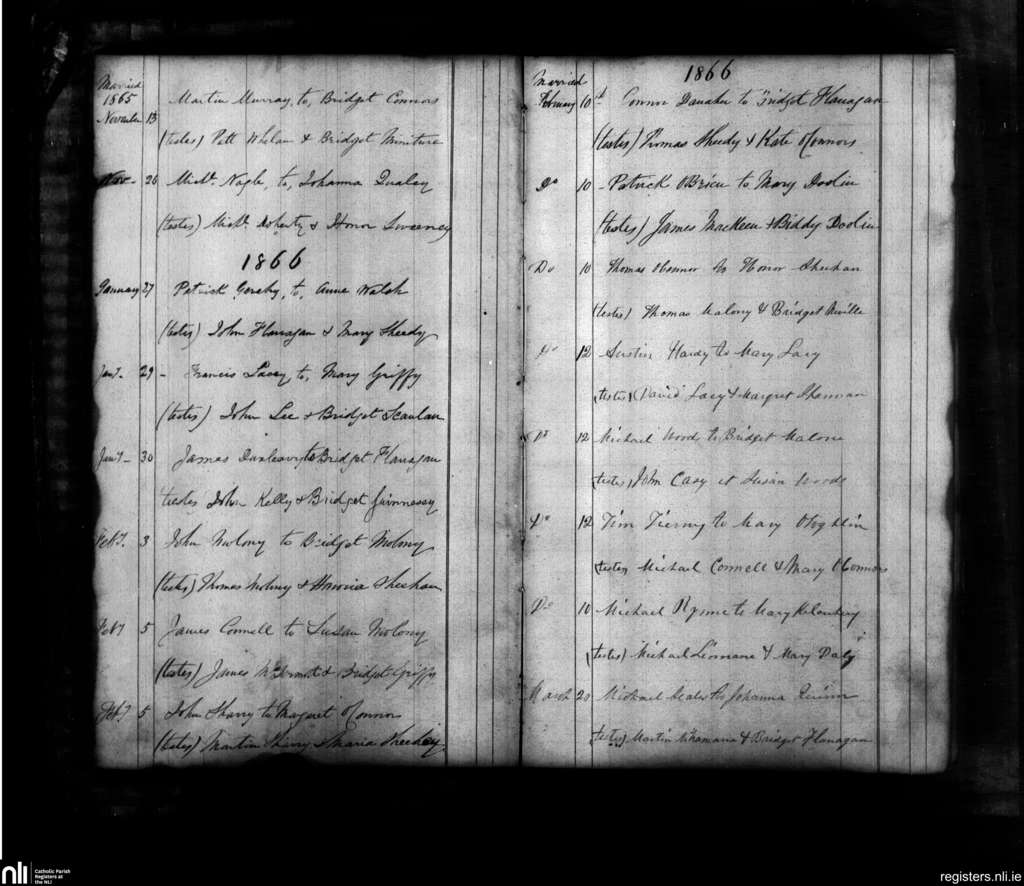 Married
1865
November 13 Martin Murray, to, Bridget Connors
(testes) Patt Whelan & Bridget
Nov- 26 Michl. Nagle, to, Johanna
(testes) Michl. Doherty & Honor Sweeney
1866
January 27 Patrick to, Anne Walsh
(testes) John Flanagan & Mary Sheedy
Jany- 29 - Francis Lacey, to, Mary Griffy
(testes) John Lee & Bridget Scanlan
Jany- 30 James Dunleavy to Bridget Flanagan
testes John Kelly & Bridget Guinnessy
Feby. 3 John Molony to Bridget Molony
(testes) Thomas Molony & Honoria Sheehan
Feby 5 James Connell to Susan Molony
(testes) James McDermott & Bridget Griffy
Feby 5 John Sharry to Margaret O'Connor
(testes) Martin & Maria Sheedy
Married 1866
February 10th Connor Danaher to Bridget Flanagan
(testes) Thomas Sheedy & Kate O'Connors
Do 10 - Patrick O'Brien to Mary Doolin
(testes) James & Biddy Doolin
Do 10 Thomas O'Connor to Honor Sheehan
(testes) Thomas Malony & Bridget Neville
Do 12 Austin Hardy to Mary Lacy
(testes) David Lacy & Margret Shannan
Do 12 Michael Woods to Bridget Malone
(testes) John Casy et Susan Woods
Do 12 Tim Tierny to Mary
(testes) Michael Connell & Mary O'Connors
Do 10 Michael to Mary
(testes) Michael Linnane & Mary Daly
March 20 Michael to Johanna Quinn
(testes) Martin & Bridget Flanagan
nli
Catholic Parish
Registers at
the NLI
registers.nli.ie